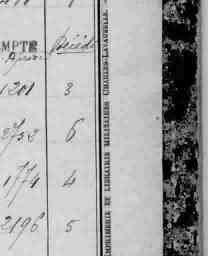 MPTE
1201 3
3733 6
1774 4
2196 5
IMPRIMERIE ET LIBRAIRIE MILITAIRES CHARLES-LAVAUZELLE.